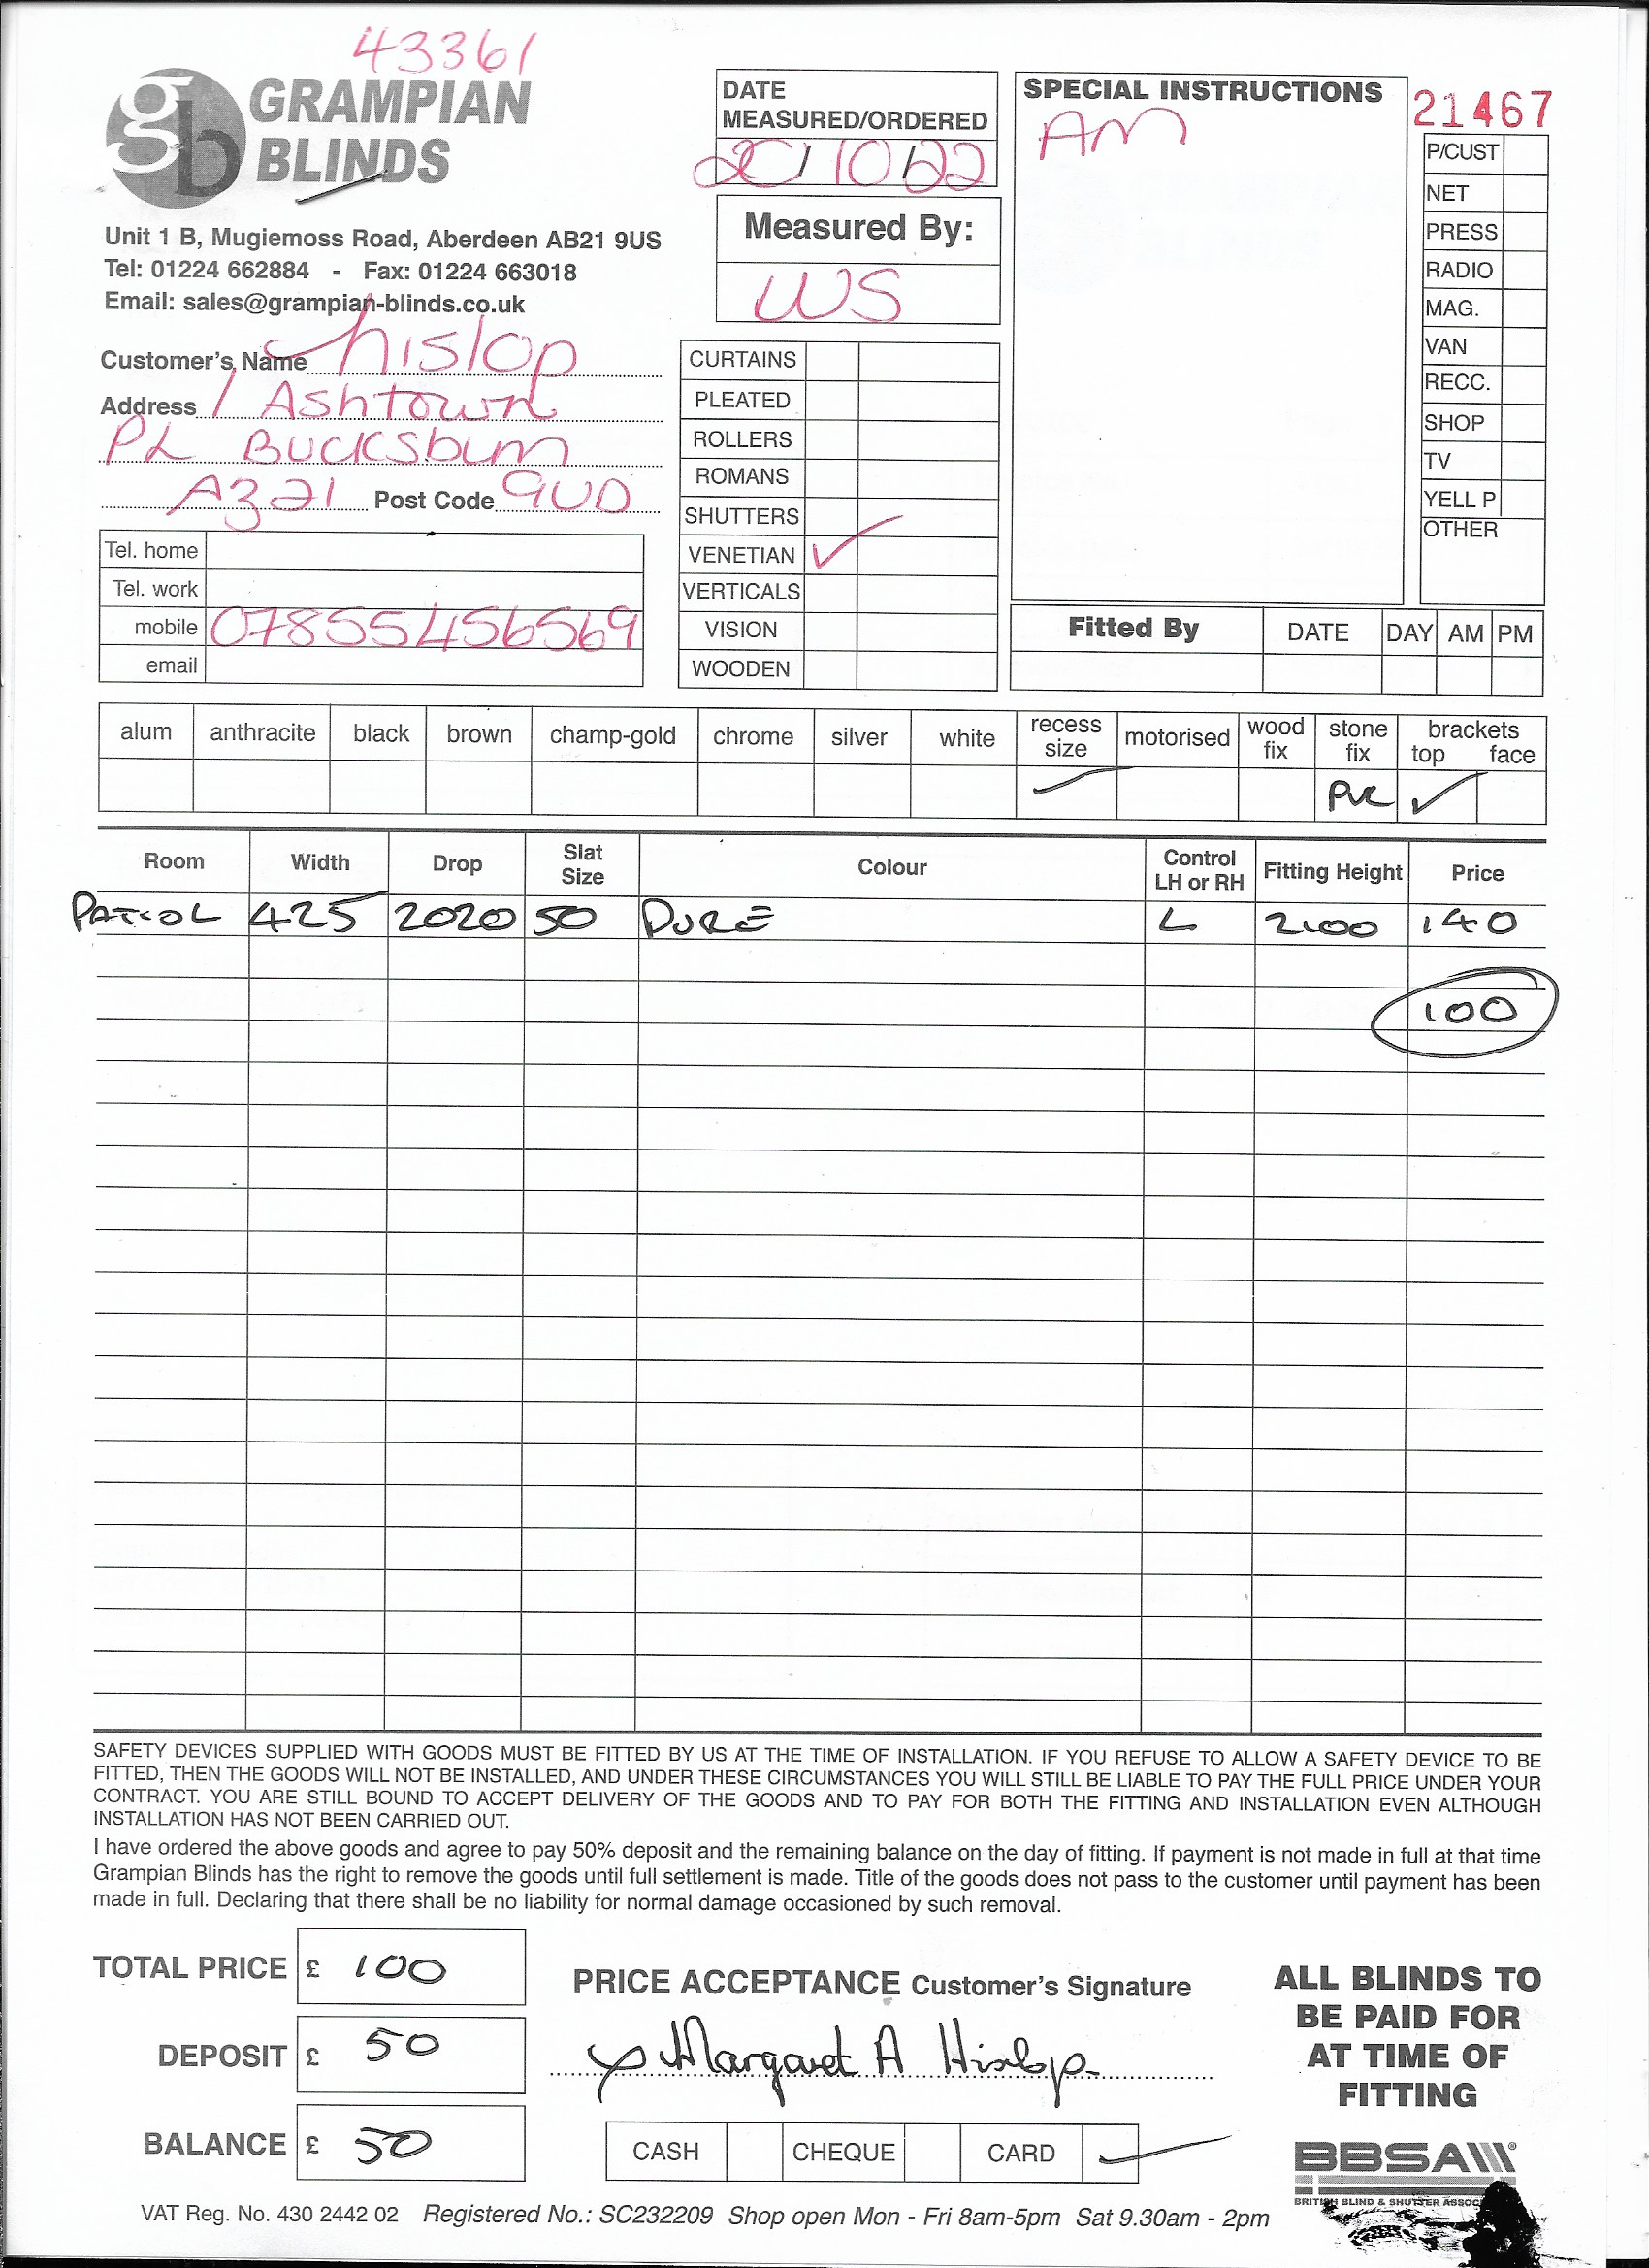 43361
gb GRAMPIAN
BLINDS
Unit 1 B, Mugiemoss Road, Aberdeen AB21 9US
Tel: 01224 662884 - Fax: 01224 663018
Email: sales@grampian-blinds.co.uk
Customer's Name Hislop
Address 1 Ashtown
PL Bucksburn
AB21 Post Code 9UD
Tel. home
Tel. work
mobile 07855456569
email
DATE
MEASURED/ORDERED
20/10/22
Measured By:
WS
CURTAINS
PLEATED
ROLLERS
ROMANS
SHUTTERS
VENETIAN ✓
VERTICALS
VISION
WOODEN
SPECIAL INSTRUCTIONS
AM
21467
P/CUST
NET
PRESS
RADIO
MAG.
VAN
RECC.
SHOP
TV
YELL P
OTHER
Fitted By DATE DAY AM PM
alum anthracite black brown champ-gold chrome silver white recess size motorised wood fix stone fix brackets top face
✓ PVC ✓
Room Width Drop Slat Size Colour Control LH or RH Fitting Height Price
425 2020 50 PURE L 2100 140
100
SAFETY DEVICES SUPPLIED WITH GOODS MUST BE FITTED BY US AT THE TIME OF INSTALLATION. IF YOU REFUSE TO ALLOW A SAFETY DEVICE TO BE
FITTED, THEN THE GOODS WILL NOT BE INSTALLED, AND UNDER THESE CIRCUMSTANCES YOU WILL STILL BE LIABLE TO PAY THE FULL PRICE UNDER YOUR
CONTRACT. YOU ARE STILL BOUND TO ACCEPT DELIVERY OF THE GOODS AND TO PAY FOR BOTH THE FITTING AND INSTALLATION EVEN ALTHOUGH
INSTALLATION HAS NOT BEEN CARRIED OUT.
I have ordered the above goods and agree to pay 50% deposit and the remaining balance on the day of fitting. If payment is not made in full at that time
Grampian Blinds has the right to remove the goods until full settlement is made. Title of the goods does not pass to the customer until payment has been
made in full. Declaring that there shall be no liability for normal damage occasioned by such removal.
TOTAL PRICE £ 100
DEPOSIT £ 50
BALANCE £ 50
PRICE ACCEPTANCE Customer's Signature
x Margaret A Hislop
CASH CHEQUE CARD ✓
ALL BLINDS TO
BE PAID FOR
AT TIME OF
FITTING
BBSA
BRITISH BLIND & SHUTTER ASSOC
VAT Reg. No. 430 2442 02 Registered No.: SC232209 Shop open Mon - Fri 8am-5pm Sat 9.30am - 2pm